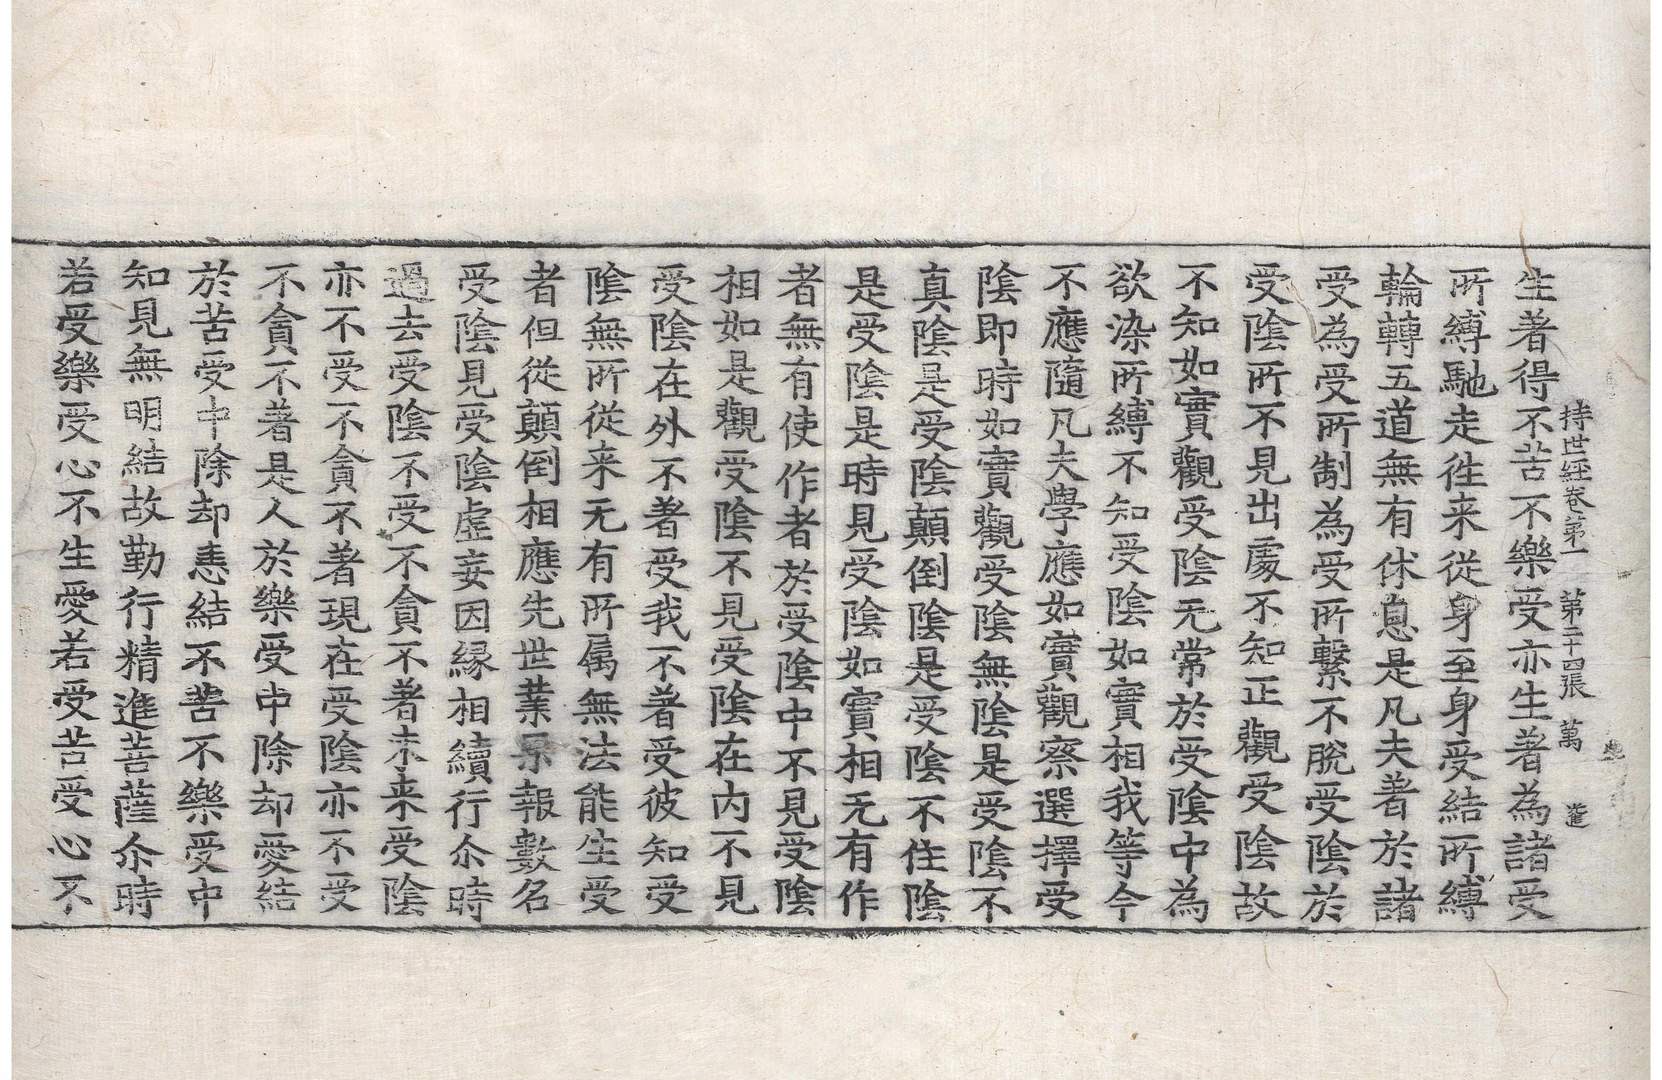 持世経卷第一　第二十四張　萬　進
生著得不苦不樂受亦生著為諸受
所縛馳走徃来従身至身受結所縛
輪轉五道無有休息是凡夫著於諸
受為受所制為受所繋不脫受陰於
受陰所不見出處不知正觀受陰故
不知如實觀受陰无常於受陰中為
欲染所縛不知受陰如實相我等今
不應隨凡夫學應如實觀察選擇受
陰即時如實觀受陰無陰是受陰不
真陰是受陰顛倒陰是受陰不住陰
是受陰是時見受陰如實相无有作
者無有使作者於受陰中不見受陰
相如是觀受陰不見受陰在内不見
受陰在外不著受我不著受彼知受
陰無所從来无有所属無法能生受
者但從顛倒相應先世業果報數名
受陰見受陰虛妄因縁相續行尒時
過去受陰不受不貪不著未来受陰
亦不受不貪不著現在受陰亦不受
不貪不著是人於樂受中除却愛結
於苦受中除却恚結不苦不樂受中
知見無明結故勤行精進菩薩尒時
若受樂受心不生愛若受苦受心不